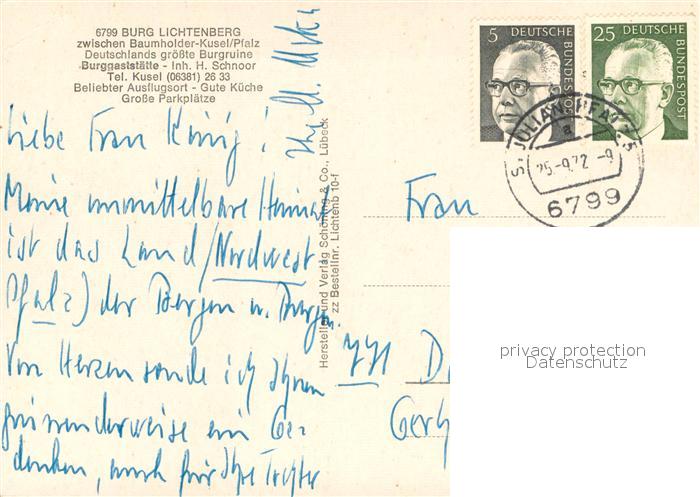 6799 BURG LICHTENBERG
zwischen Baumholder-Kusel/Pfalz
Deutschlands größte Burgruine
Burggaststätte - Inh. H. Schnoor
Tel. Kusel (06381) 26 33
Beliebter Ausflugsort - Gute Küche
Große Parkplätze
Liebe Frau König!
Meine unmittelbare Heimat
ist das Land/Nordwest
Pfalz) der Bergen u. Burgen.
Von Herzen sende ich Ihnen
ein Ge-
denken, auch für Ihre Tochter
Hersteller und Verlag Schöning & Co., Lübeck
zz Bestellnr. Lichtenb 10-f
5 DEUTSCHE BUNDESPOST
25 DEUTSCHE BUNDESPOST
ST JULIAN PFALZ
a
25-9.72-9
6799
Frau
D
Gerh
privacy protection
Datenschutz